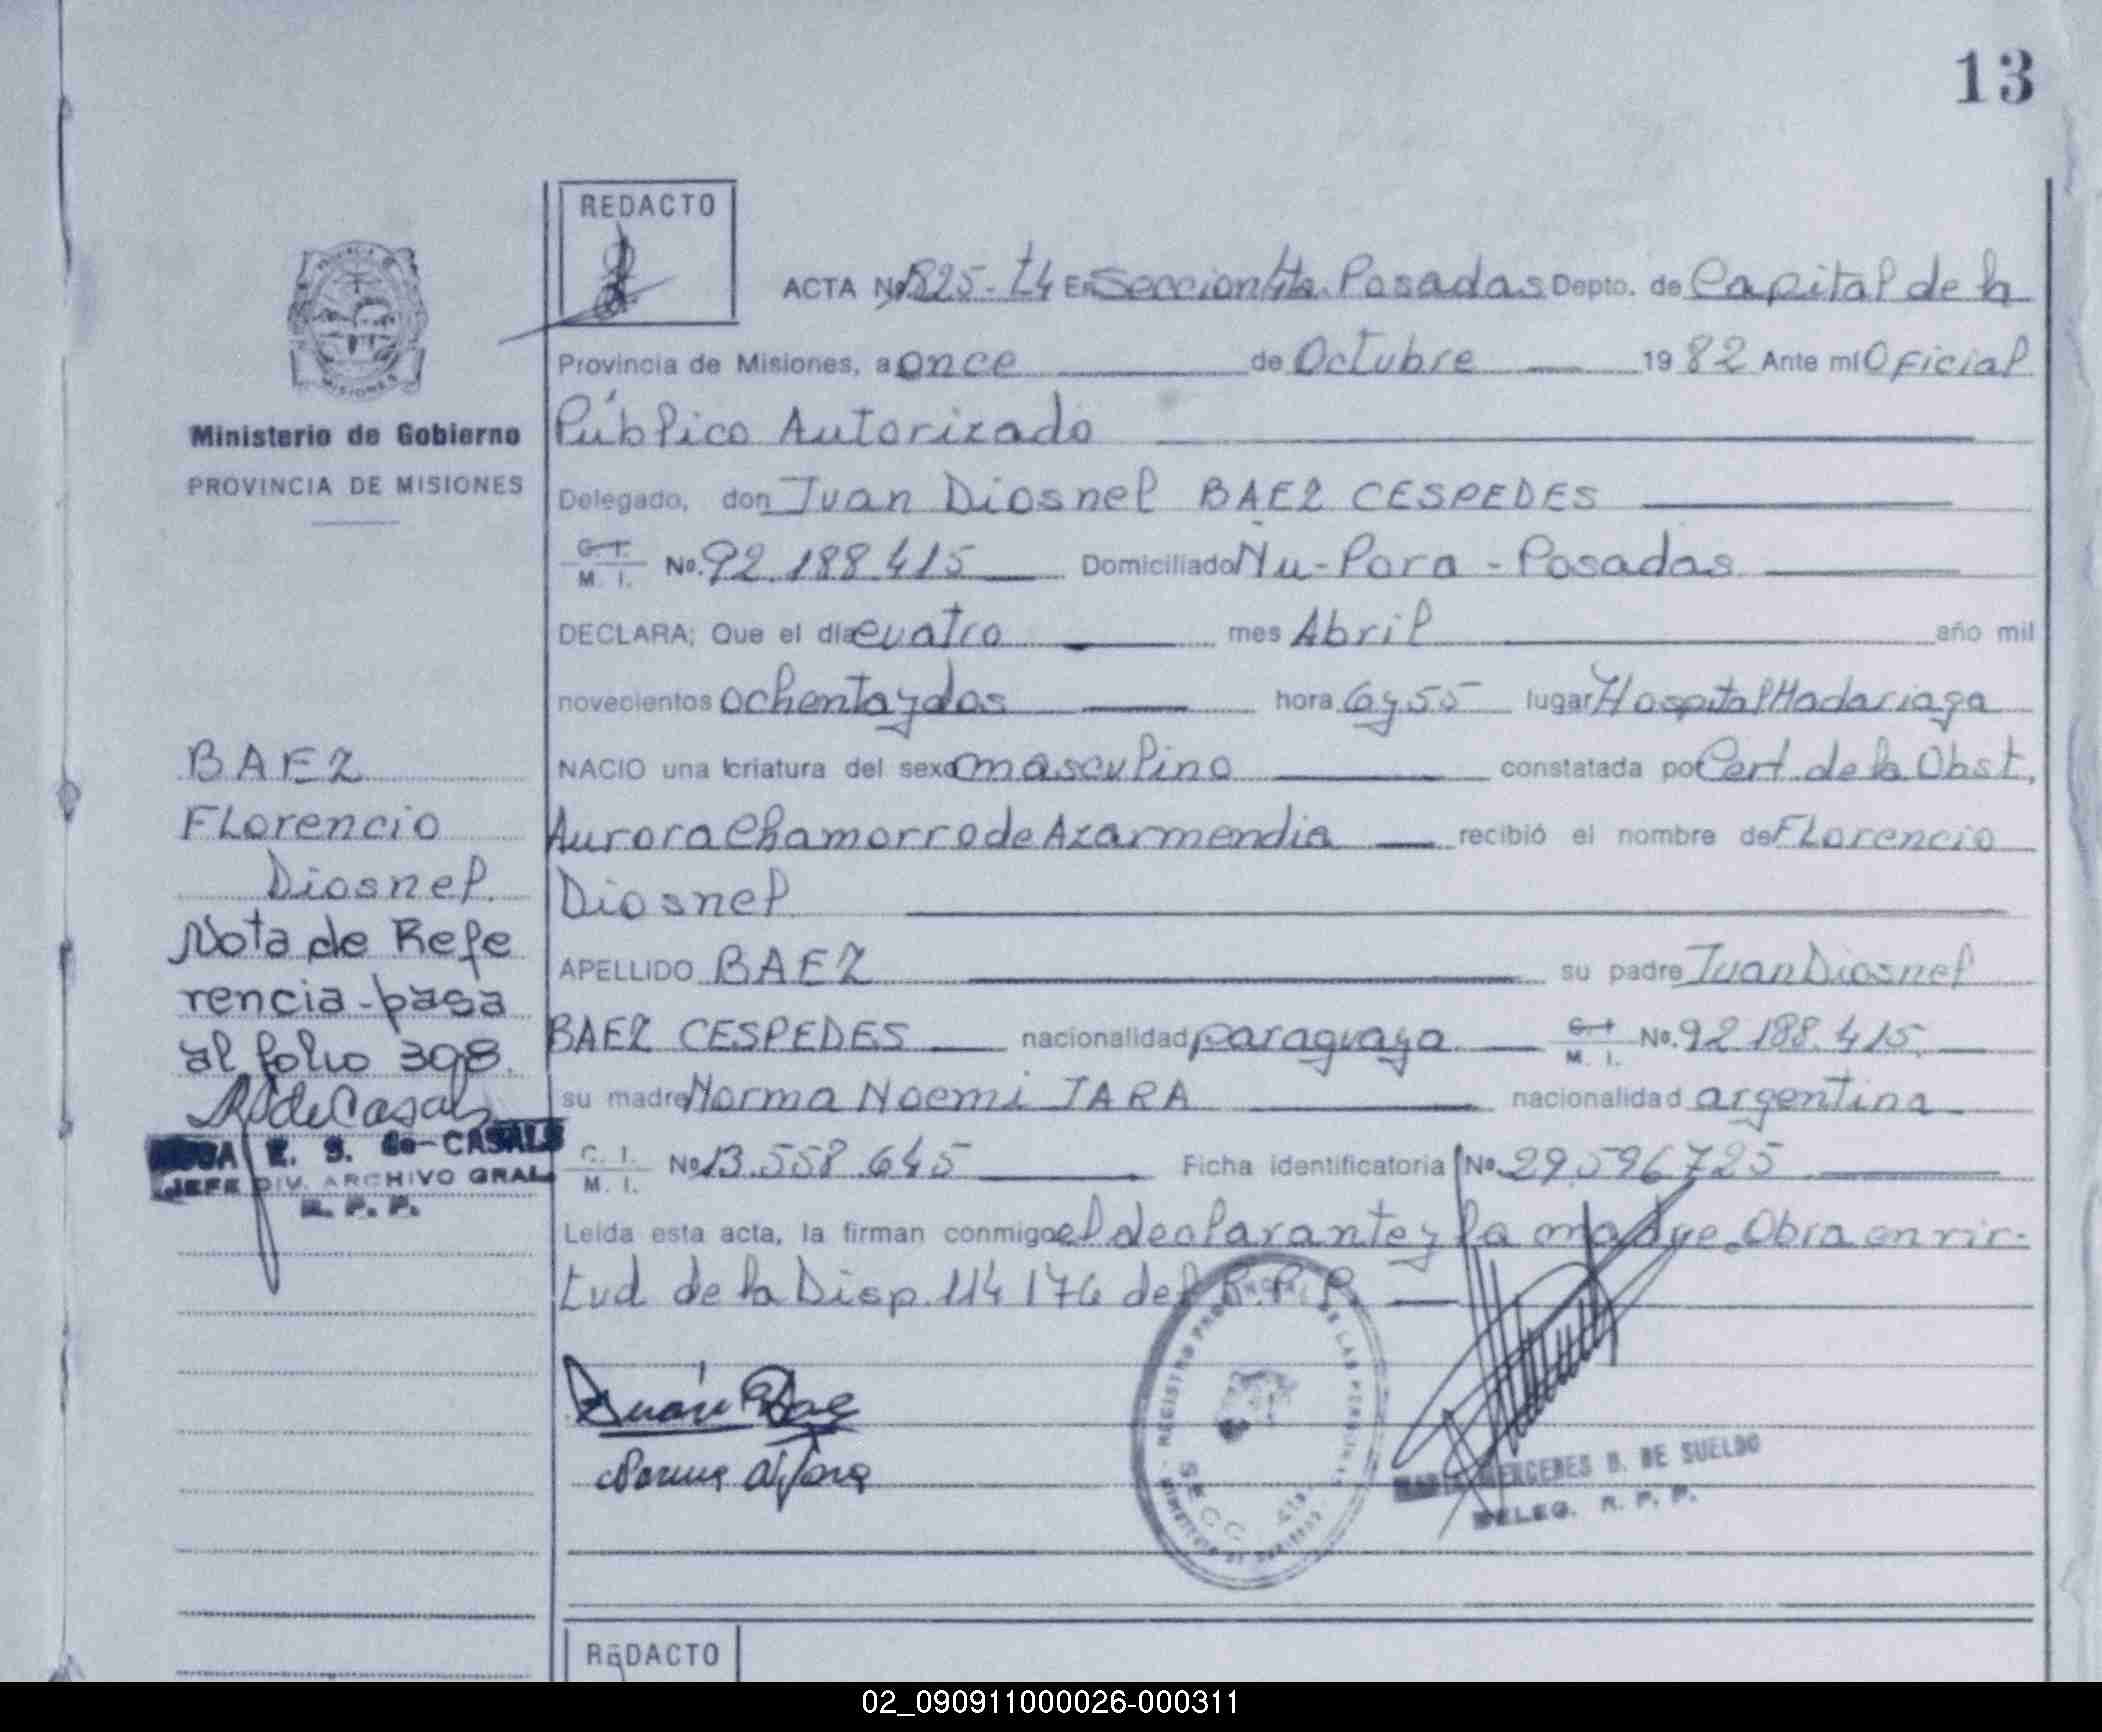 13
REDACTO
PROVINCIA DE
MISIONES
Ministerio de Gobierno
PROVINCIA DE MISIONES
ACTA No 825-t4 En Seccion 4ta. Posadas Depto. de Capital de la
Provincia de Misiones, a once de Octubre 1982 Ante mi Oficial
Público Autorizado
Delegado, don Juan Diosnel BAEZ CESPEDES
C. I. M. I. No. 92.188.415 Domiciliado Ñu-Pora - Posadas
DECLARA; Que el día cuatro mes Abril año mil
novecientos ochenta y dos hora 6 y 55 lugar Hospital Madariaga
NACIO una criatura del sexo masculino constatada por Cert. de la Obst.
Aurora Chamorro de Azarmendia recibió el nombre de Florencio
Diosnel
APELLIDO BAEZ su padre Juan Diosnel
BAEZ CESPEDES nacionalidad paraguaya C. I. M. I. No. 92.188.415.
su madre Norma Noemi JARA nacionalidad argentina
C. I. M. I. No 13.558.645 Ficha identificatoria No. 29.596.725
Leída esta acta, la firman conmigo el declarante y la madre. Obra en vir-
tud de la Disp. 114 176 del R.P.P.
BAEZ
Florencio
Diosnel.
Nota de Refe
rencia - pasa
al folio 398.
RSdeCasals
E. S. de CASALS
JEFE DIV. ARCHIVO GRAL.
R. P. P.
Juan Bae
Norma Jara
REGISTRO PROVINCIAL DE LAS PERSONAS
SECC. 4ta.
MERCEDES B. DE SUELDO
DELEG. R. P. P.
REDACTO
02_090911000026-000311